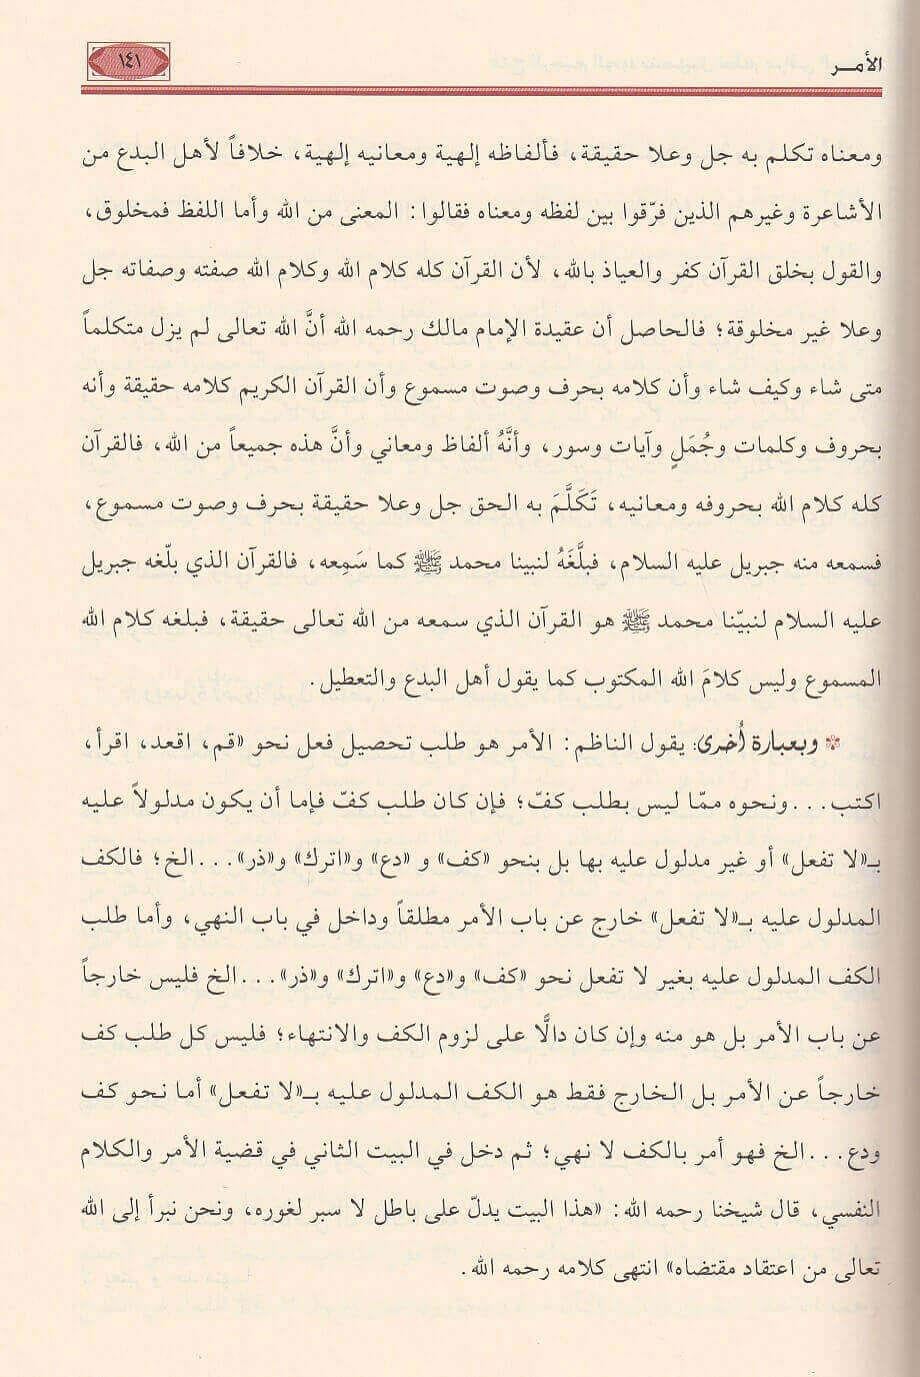 الأمـر
١٤١
ومعناه تكلم به جل وعلا حقيقة، فألفاظه إلهية ومعانيه إلهية، خلافاً لأهل البدع من
الأشاعرة وغيرهم الذين فرّقوا بين لفظه ومعناه فقالوا: المعنى من الله وأما اللفظ فمخلوق،
والقول بخلق القرآن كفر والعياذ بالله، لأن القرآن كله كلام الله وكلام الله صفته وصفاته جل
وعلا غير مخلوقة؛ فالحاصل أن عقيدة الإمام مالك رحمه الله أنَّ الله تعالى لم يزل متكلماً
متى شاء وكيف شاء وأن كلامه بحرف وصوت مسموع وأن القرآن الكريم كلامه حقيقة وأنه
بحروف وكلمات وجُمَلٍ وآيات وسور، وأنَّهُ ألفاظ ومعاني وأنَّ هذه جميعاً من الله، فالقرآن
كله كلام الله بحروفه ومعانيه، تَكَلَّمَ به الحق جل وعلا حقيقة بحرف وصوت مسموع،
فسمعه منه جبريل عليه السلام، فبلَّغَهُ لنبينا محمد ﷺ كما سَمِعه، فالقرآن الذي بلّغه جبريل
عليه السلام لنبيّنا محمد ﷺ هو القرآن الذي سمعه من الله تعالى حقيقة، فبلغه كلام الله
المسموع وليس كلامَ الله المكتوب كما يقول أهل البدع والتعطيل.
وبعبارة أُخرى: يقول الناظم: الأمر هو طلب تحصيل فعل نحو «قم، اقعد، اقرأ،
اكتب...ونحوه ممّا ليس بطلب كفّ؛ فإن كان طلب كفّ فإما أن يكون مدلولاً عليه
بـ«لا تفعل» أو غير مدلول عليه بها بل بنحو «كف» و «دع» و«اترك» و«ذر»...الخ؛ فالكف
المدلول عليه بـ«لا تفعل» خارج عن باب الأمر مطلقاً وداخل في باب النهي، وأما طلب
الكف المدلول عليه بغير لا تفعل نحو «كف» و«دع» و«اترك» و«ذر»...الخ فليس خارجاً
عن باب الأمر بل هو منه وإن كان دالًّا على لزوم الكف والانتهاء؛ فليس كل طلب كف
خارجاً عن الأمر بل الخارج فقط هو الكف المدلول عليه بـ«لا تفعل» أما نحو كف
ودع...الخ فهو أمر بالكف لا نهي؛ ثم دخل في البيت الثاني في قضية الأمر والكلام
النفسي، قال شيخنا رحمه الله: «هذا البيت يدلّ على باطل لا سبر لغوره، ونحن نبرأ إلى الله
تعالى من اعتقاد مقتضاه» انتهى كلامه رحمه الله.